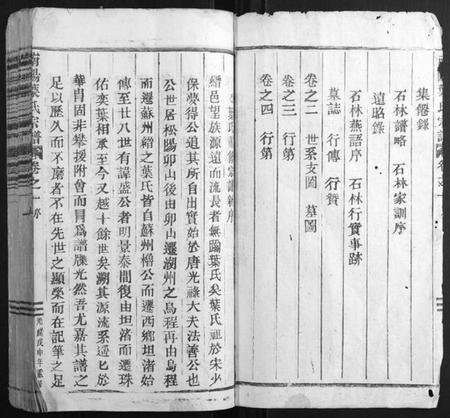 集僊錄
石林譜略 石林家訓序
遠略錄
石林燕語序 石林行實事跡
卷之二 世系支圖 墓圖
墓誌 行傳 行贊
卷之三 行第
卷之四 行第
葉氏宗譜序
縉邑望族源遠而流長者無踰葉氏矣葉氏祖於宋少
保夢得公追其所自出實始於唐光祿大夫法善公也
公世居松陽卯山後由卯山遷湖州之烏程再由烏程
而遷蘇州縉之葉氏皆自蘇州櫓公而遷西鄉坦渚始
傳至廿八世有諱盛公者明景泰間復由坦渚而遷珠
佑奕葉相承至今又越十餘世矣溯其源流系遥匕於
華胄固非攀援附會而冐為譜牒光然吾尤嘉其譜之
足以歷久而不磨者不在先世之顯榮而在記筆之足
南陽葉氏宗譜 卷之一 序
光緒戊申年